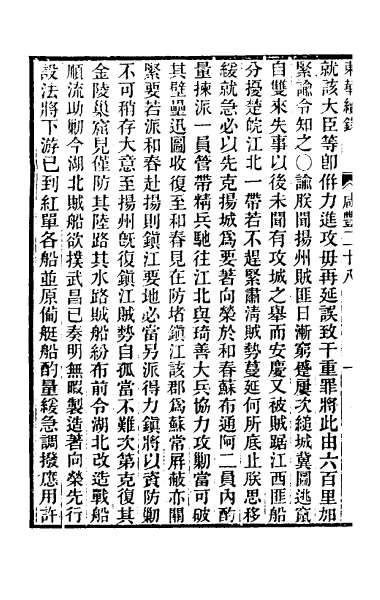 東華續錄　咸豐二十八　一
就該大臣等卽併力進攻毋再延誤致干重罪將此由六百里加
緊諭令知之〇諭朕聞揚州賊匪日漸窮蹙屢次縋城冀圖逃竄
自雙來失事以後未聞有攻城之舉而安慶又被賊踞江西匪船
分擾楚皖江北一帶若不趕緊肅清賊勢蔓延何所底止朕思移
緩就急必以先克揚城爲要著向榮於和春蘇布通阿二員內酌
量揀派一員管帶精兵馳往江北與琦善大兵協力攻勦當可破
其壁壘迅圖收復至和春見在防堵鎭江該郡爲蘇常屛蔽亦關
緊要若派和春赴揚則鎭江要地必當另派得力鎭將以資防勦
不可稍存大意至揚州旣復鎭江賊勢自孤當不難次第克復其
金陵巢窟見僅防其陸路其水路賊船紛布前令湖北改造戰船
順流助勦今湖北賊船欲撲武昌已奏明無暇製造著向榮先行
設法將下游已到紅單各船並原備艇船酌量緩急調撥應用許